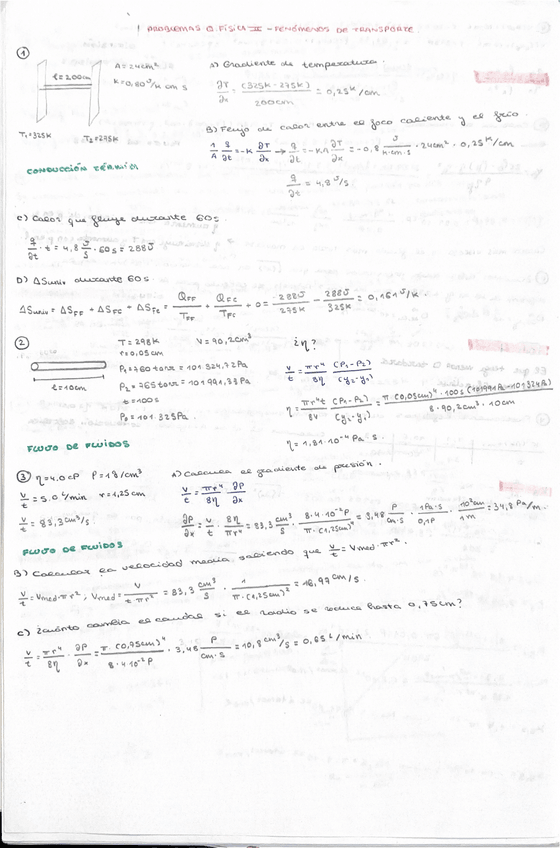 PROBLEMAS Q. FÍSICA II - FENÓMENOS DE TRANSPORTE.
①
l = 200cm
A = 24cm²
K = 0,80 J/K cm s
T₁ = 325K T₂ = 275K
CONDUCCIÓN TÉRMICA
A) Gradiente de temperatura.
∂T/∂x = (325K - 275K)/200cm = 0,25 K/cm
B) Flujo de calor entre el foco caliente y el frío.
1/A q/∂t = -K ∂T/∂x → q/∂t = -KA ∂T/∂x = -0,8 J/K·cm·s · 24cm² · 0,25 K/cm
q/∂t = 4,8 J/s
C) Calor que fluye durante 60s.
q/∂t · t = 4,8 J/s · 60s = 288J
D) ΔSuniv durante 60s.
ΔSuniv = ΔS_FF + ΔS_FC + ΔS = Q_FF/T_FF + Q_FC/T_FC + 0 = 288J/275K - 288J/325K = 0,161 J/K.
②
l = 10cm
T = 298K V = 90,2cm³
r = 0,05cm
P₁ = 760 torr = 101.324,72Pa
P₂ = 765 torr = 101.991,33Pa
t = 100s
P₀ = 101.325Pa
FLUJO DE FLUIDOS
¿η?
V/t = πr⁴/8η (P₁-P₂)/(y₂-y₁)
η = πr⁴t/8V (P₁-P₂)/(y₂-y₁) = π·(0,05cm)⁴·100s (101991Pa-101324Pa)/8·90,2cm³·10cm
η = 1,81·10⁻⁴ Pa·s.
③ η = 4,0cP ρ = 1g/cm³
V/t = 5,0 L/min r = 1,25cm
V/t = 83,3 cm³/s
FLUJO DE FLUIDOS
A) Calcula el gradiente de presión.
V/t = πr⁴/8η ∂P/∂x
∂P/∂x = V/t · 8η/πr⁴ = 83,3 cm³/s · 8·4·10⁻²P/π·(1,25cm)⁴ = 3,48 P/cm·s · 1Pa·s/0,1P · 10²cm/1m = 34,8 Pa/m.
B) Calcular la velocidad media sabiendo que V/t = Vmed·πr².
V/t = Vmed·πr²; Vmed = V/t πr² = 83,3 cm³/s · 1/π·(1,25cm)² = 16,97 cm/s.
C) ¿Cuánto cambia el caudal si el radio se reduce hasta 0,75cm?
V/t = πr⁴/8η · ∂P/∂x = π·(0,75cm)⁴/8·4·10⁻²P · 3,48 P/cm·s = 10,8 cm³/s = 0,65 L/min